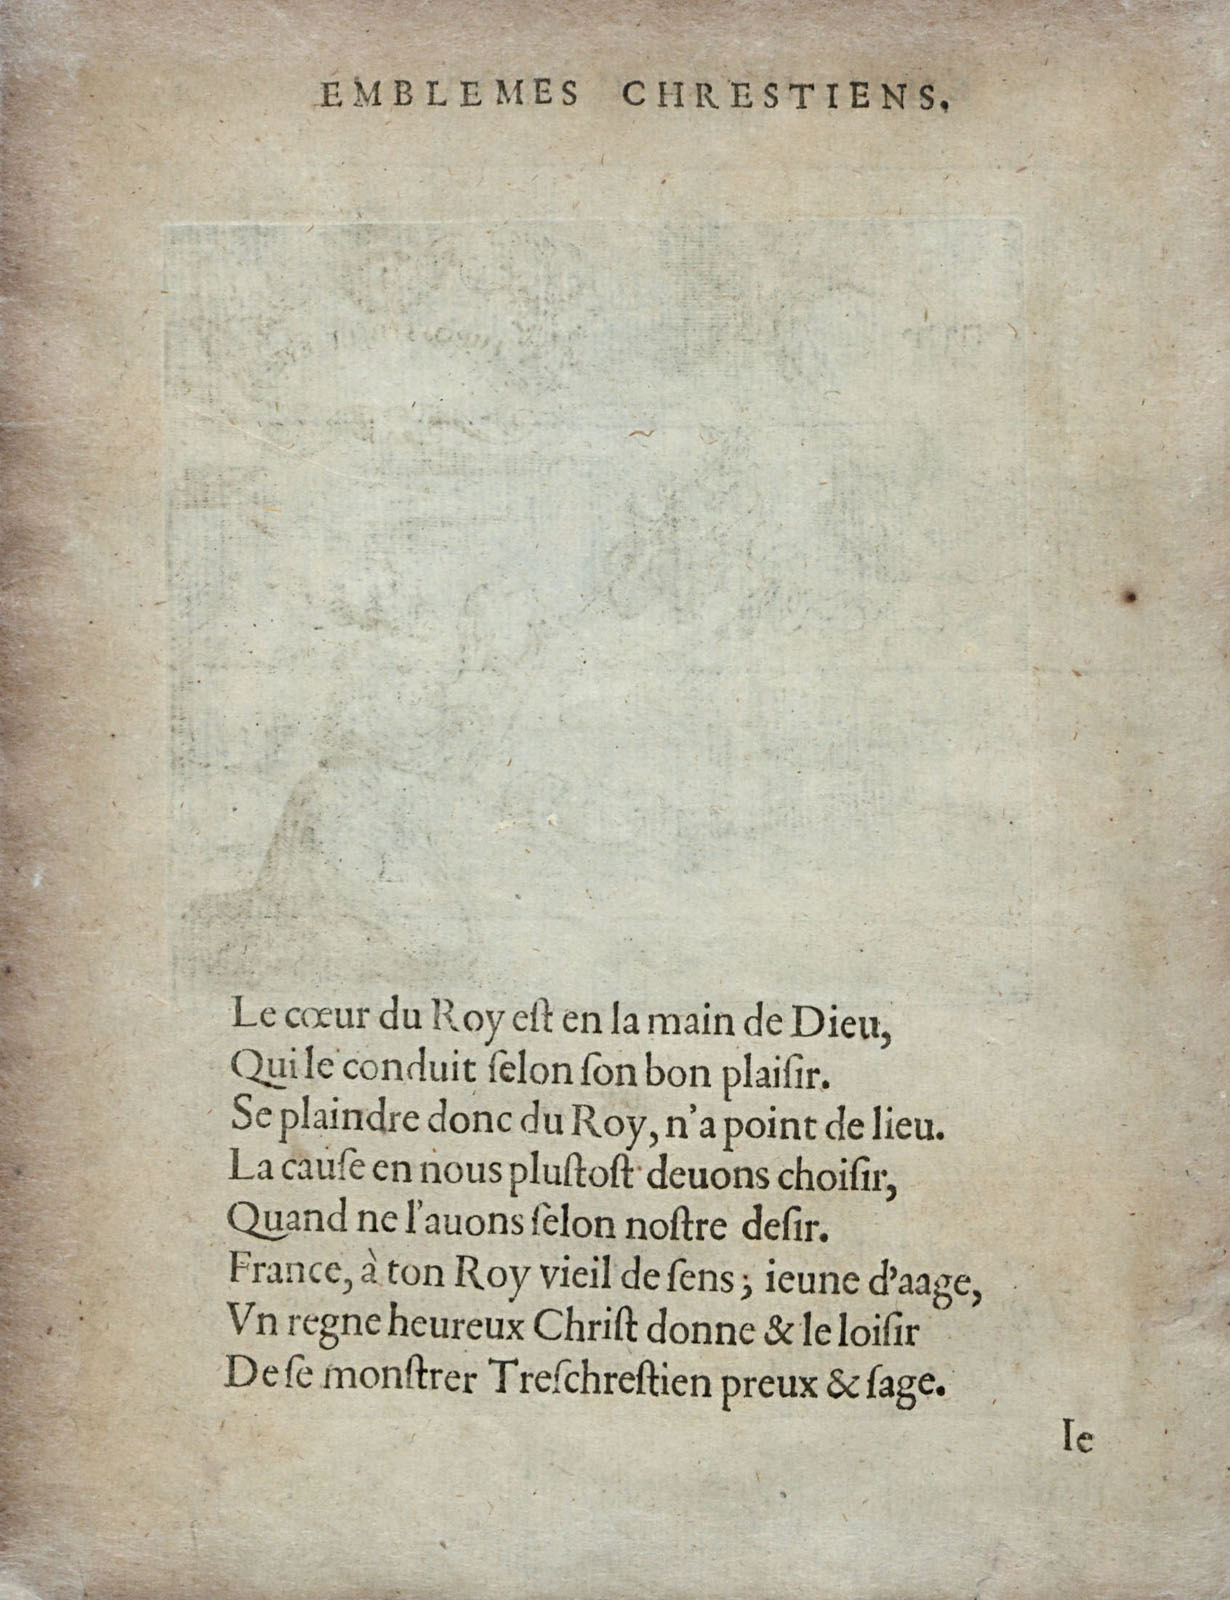 EMBLEMES CHRESTIENS.
Le cœur du Roy eſt en la main de Dieu,
Qui le conduit ſelon ſon bon plaiſir.
Se plaindre donc du Roy, n'a point de lieu.
La cauſe en nous pluſtoſt deuons choiſir,
Quand ne l'auons ſelon noſtre deſir.
France, à ton Roy vieil de ſens; ieune d'aage,
Vn regne heureux Chriſt donne & le loiſir
De ſe monſtrer Treſchreſtien preux & ſage.
Ie